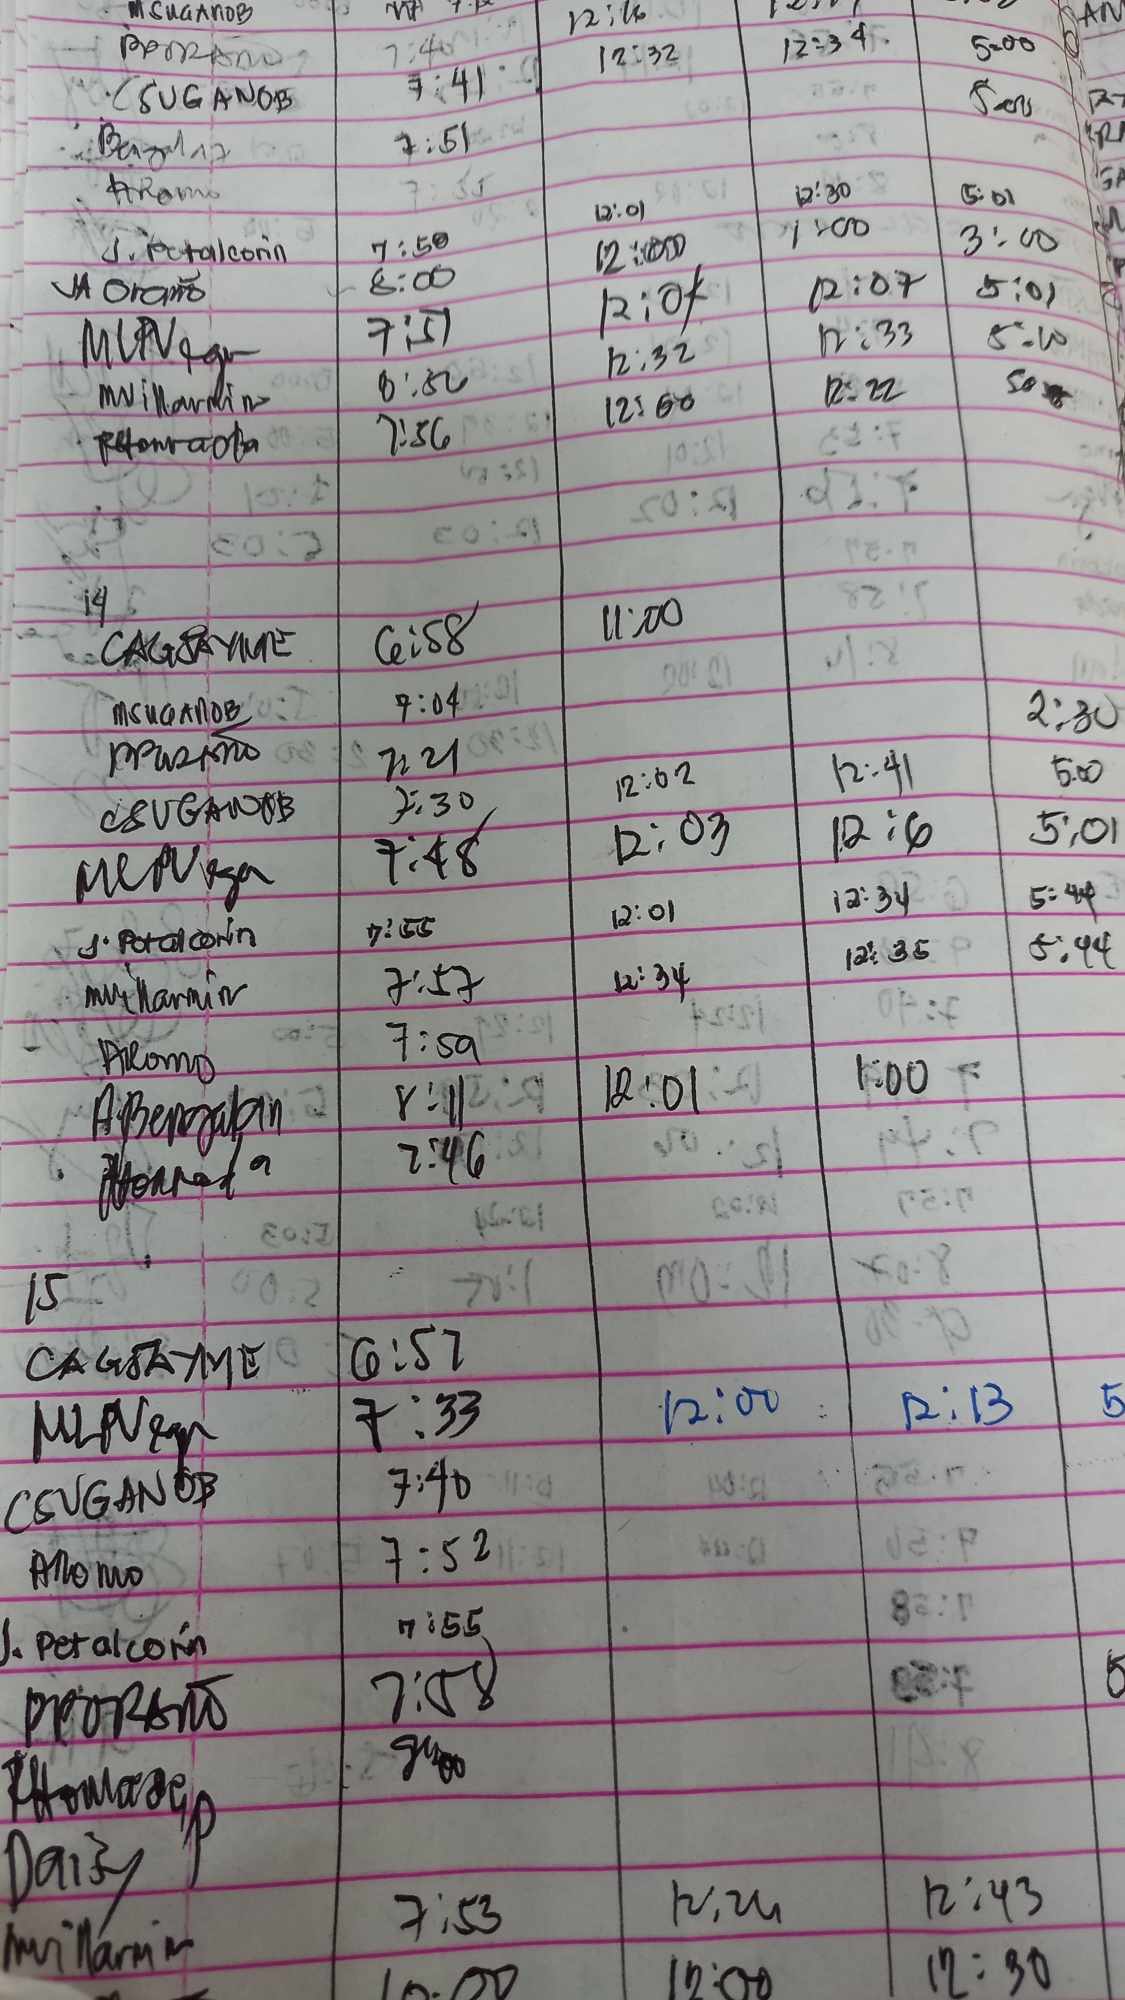 MSUGANOB
PPORAÑO 7:40 12:32 12:34 5:00
CSUGANOB 7:41
7:51
ARomo 12:01 12:30 5:01
J. Petalcorin 7:50 12:00 1:00 3:00
JA Oraño 8:00 12:07 5:01
MLPVega 7:51 12:32 12:33 5:10
mvillarmin 12:22
RHonrada 7:56
14
CAGSAYME 6:58 11:00
MSUGANOB 7:04 2:30
PPORAÑO 7:21
CSUGANOB 7:30 12:02 12:41 5:00
MLPVega 7:48 12:03 12:6 5:01
J. Petalcorin 7:55 12:01 12:34 5:44
mvillarmin 7:57 12:34 12:35 5:44
ARomo 7:59
ABengalan 8:11 12:01 1:00
RHonrada 7:46
15
CAGSAYME 6:57
MLPVega 7:33 12:00 12:13 5
CSUGANOB 7:40
ARomo 7:52
J. Petalcorin 7:55
PPORAÑO 7:58 5
Daisy P
mvillarmin 7:53 12:24 12:43
10:00 12:00 12:30